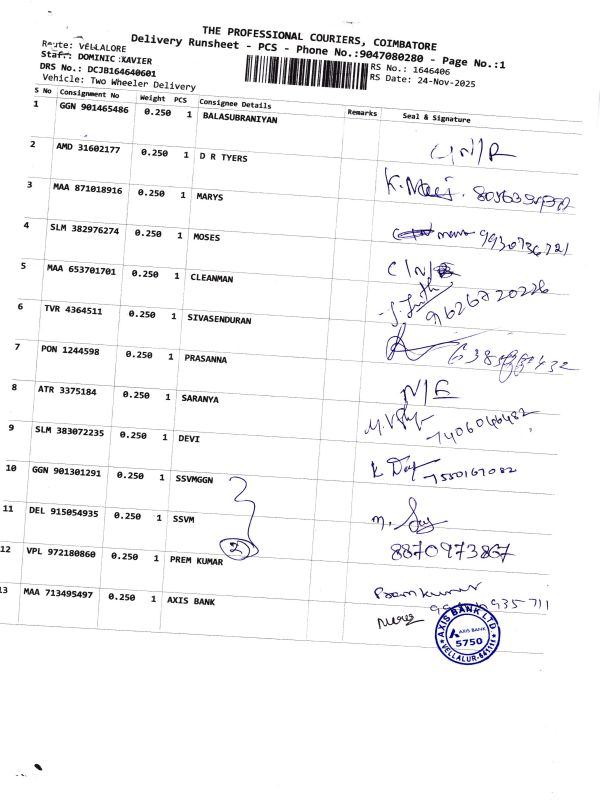 THE PROFESSIONAL COURIERS, COIMBATORE
Delivery Runsheet - PCS - Phone No.:9047080280 - Page No.:1
Route: VELLALORE
Staff: DOMINIC XAVIER
DRS No.: DCJB164640601
Vehicle: Two Wheeler Delivery
RS No.: 1646406
RS Date: 24-Nov-2025
S No Consignment No Weight PCS Consignee Details Remarks Seal & Signature
1 GGN 901465486 0.250 1 BALASUBRANIYAN
C/N/R
2 AMD 31602177 0.250 1 D R TYERS
3 MAA 871018916 0.250 1 MARYS
9930736721
4 SLM 382976274 0.250 1 MOSES
C/N/
5 MAA 653701701 0.250 1 CLEANMAN
9626720226
6 TVR 4364511 0.250 1 SIVASENDURAN
7 PON 1244598 0.250 1 PRASANNA
N/E
8 ATR 3375184 0.250 1 SARANYA
7406046482
9 SLM 383072235 0.250 1 DEVI
7550167082
10 GGN 901301291 0.250 1 SSVMGGN
11 DEL 915054935 0.250 1 SSVM
2
8870973867
12 VPL 972180860 0.250 1 PREM KUMAR
Premkumar
935711
13 MAA 713495497 0.250 1 AXIS BANK
AXIS BANK LTD
AXIS BANK
5750
VELLALUR-641111